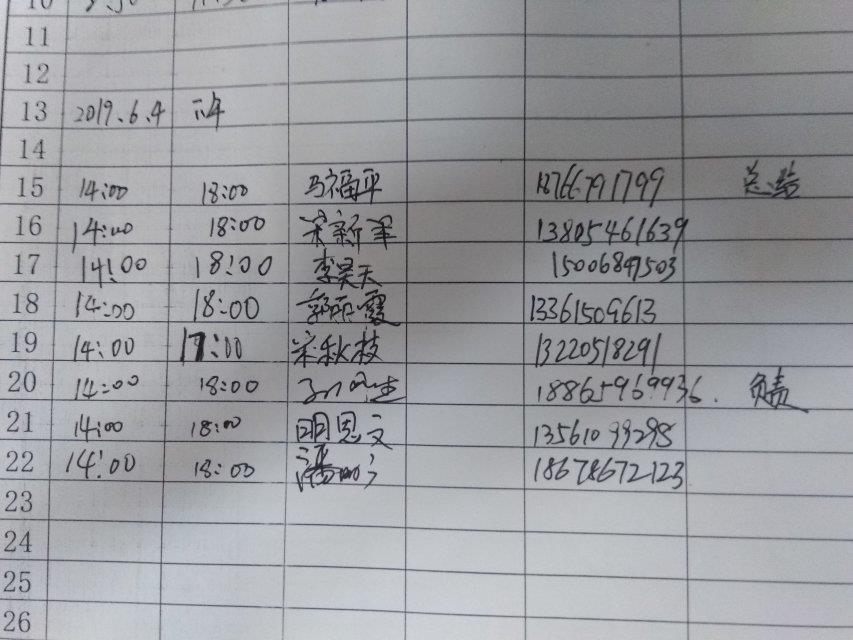 11
12
13 2019.6.4 下午
14
15 14:00 18:00 马福平 18766791799 总监
16 14:00 18:00 宋新军 13805461639
17 14:00 18:00 李昊天 15006849503
18 14:00 18:00 郭丽霞 13361509613
19 14:00 17:00 宋秋枝 13220518291
20 14:00 18:00 18865969936. 负责
21 14:00 18:00 明思文 13561099298
22 14:00 18:00 潘 18678672123
23
24
25
26